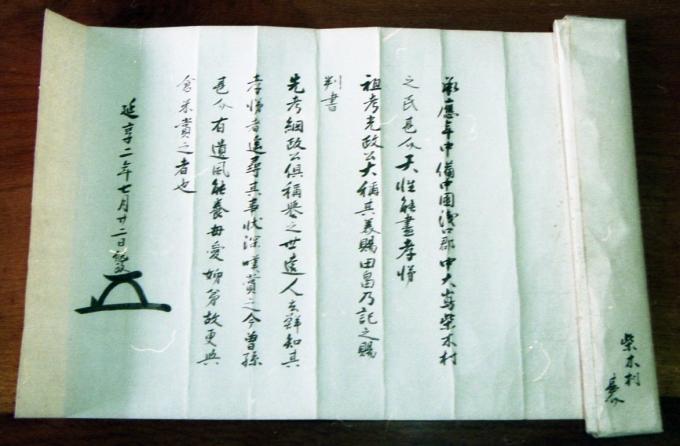 承應年中備中国浅口郡中大嶌柴木村
之民甚介天性能盡孝悌
祖考光政公大稱其義賜田畠乃記之賜
判書
先考綱政公倶稱誉之世遠人亡鮮知其
孝悌者追尋其事状深嘆賞之今曽孫
甚介有遺風能養母愛姉弟故更與
倉米賞之者也
延享二年七月廿二日継政
柴木村
甚介